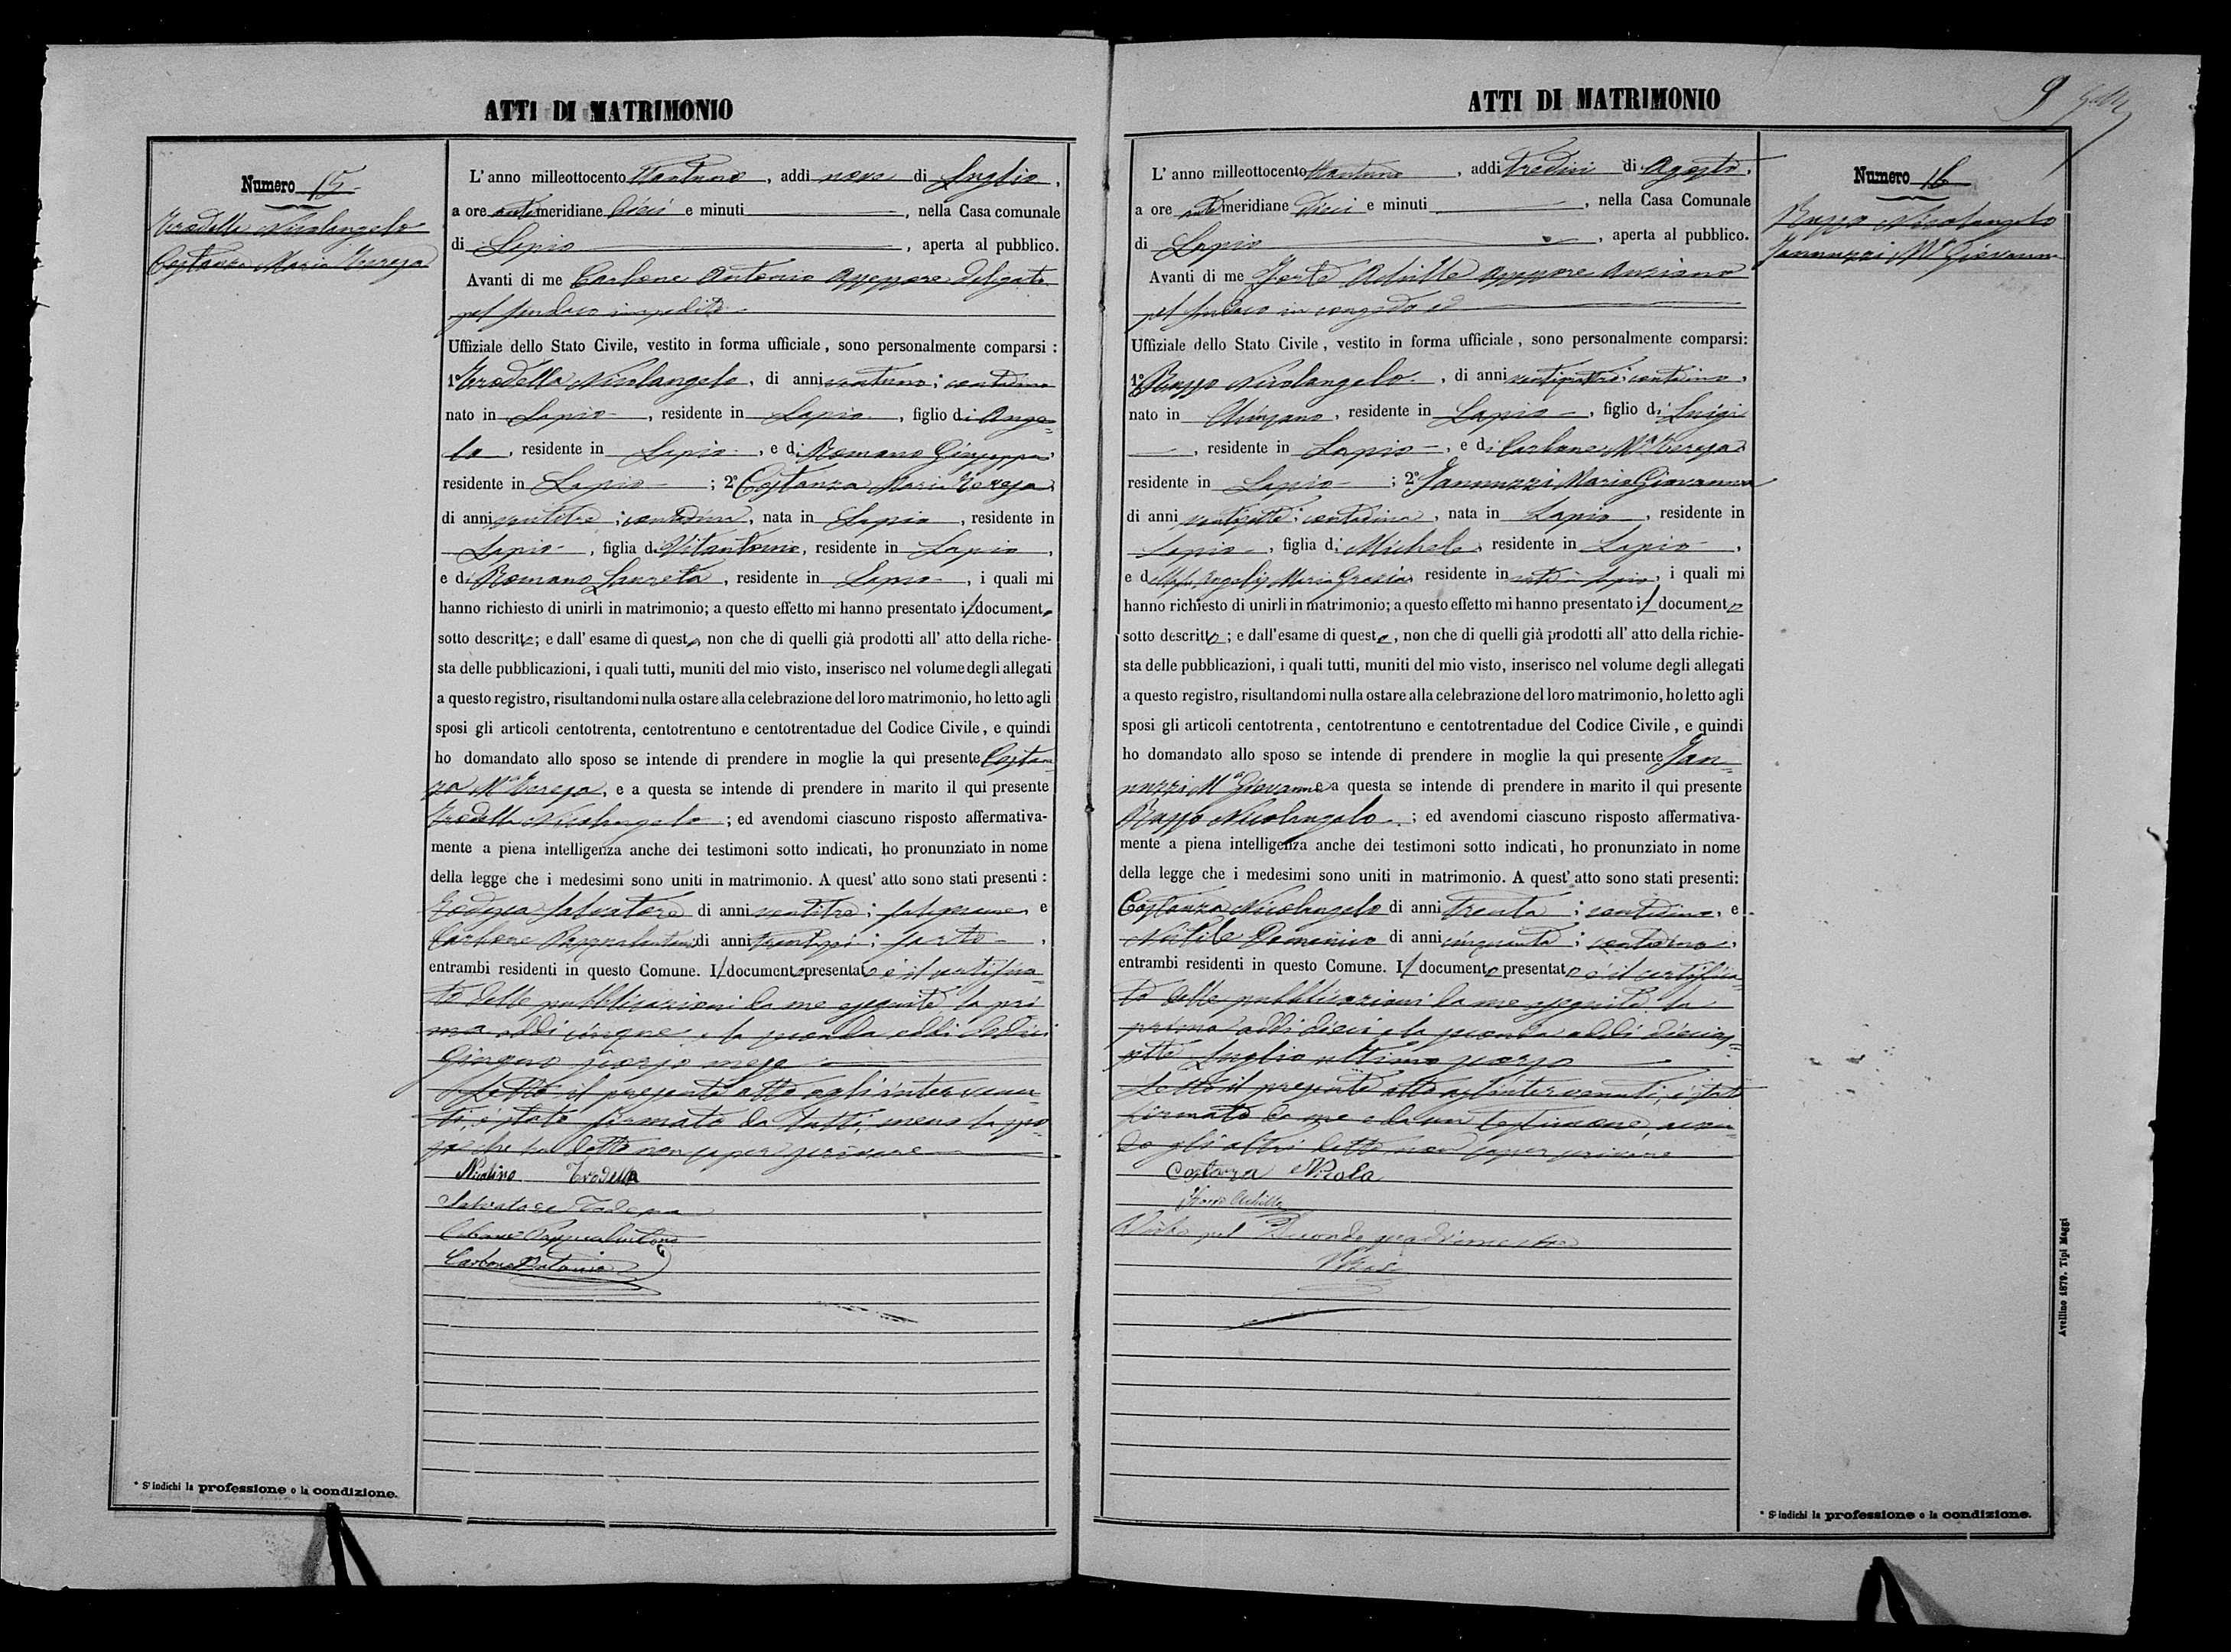 ATTI DI MATRIMONIO
Numero 15
Trodella Nicolangelo
Costanza Maria Teresa
L' anno milleottocento ottantuno, addì nove di Luglio,
a ore antimeridiane dieci e minuti, nella Casa comunale
di Lapio, aperta al pubblico.
Avanti di me Carbone Antonio Assessore delegato
pel sindaco impedito
Uffiziale dello Stato Civile, vestito in forma ufficiale, sono personalmente comparsi:
1º Trodella Nicolangelo, di anni ventuno; contadino
nato in Lapio, residente in Lapio, figlio di Ange=
lo, residente in Lapio, e di Romano Giuseppa,
residente in Lapio; 2º Costanza Maria Teresa,
di anni ventitre; contadina, nata in Lapio, residente in
Lapio, figlia di Vitantonio, residente in Lapio,
e di Romano Laureta, residente in Lapio, i quali mi
hanno richiesto di unirli in matrimonio; a questo effetto mi hanno presentato il documento
sotto descritto; e dall' esame di questo, non che di quelli già prodotti all' atto della riche-
sta delle pubblicazioni, i quali tutti, muniti del mio visto, inserisco nel volume degli allegati
a questo registro, risultandomi nulla ostare alla celebrazione del loro matrimonio, ho letto agli
sposi gli articoli centotrenta, centotrentuno e centotrentadue del Codice Civile, e quindi
ho domandato allo sposo se intende di prendere in moglie la qui presente Costan=
za Mª Teresa, e a questa se intende di prendere in marito il qui presente
Trodella Nicolangelo; ed avendomi ciascuno risposto affermativa-
mente a piena intelligenza anche dei testimoni sotto indicati, ho pronunziato in nome
della legge che i medesimi sono uniti in matrimonio. A quest' atto sono stati presenti:
Todesca Salvatore di anni ventitre; falegname, e
Carbone Pasqualantonio di anni; sarto,
entrambi residenti in questo Comune. Il documento presentato è il certifica=
to delle pubblicazioni da me eseguite, la pri
ma addì cinque e la seconda addì dodici
Giugno scorso mese
Letto il presente atto agli intervenu=
ti, è stato firmato da tutti, meno la spo=
sa che ha detto non saper scrivere
Nicolino Trodella
Salvatore Todesca
Carbone Pasqualantonio
Carbone Antonio
* S' indichi la professione o la condizione.
ATTI DI MATRIMONIO
9
Numero 16
Russo Nicolangelo
Jannuzzi Mª Giovanna
L' anno milleottocento ottantuno, addì tredici di Agosto,
a ore antimeridiane dieci e minuti, nella Casa Comunale
di Lapio, aperta al pubblico.
Avanti di me Forte Achille Assessore Anziano
pel sindaco in congedo ed
Uffiziale dello Stato Civile, vestito in forma ufficiale, sono personalmente comparsi:
1º Russo Nicolangelo, di anni; contadino,
nato in Chiusano, residente in Lapio, figlio di Luigi
, residente in Lapio, e di Carbone Mª Teresa,
residente in Lapio; 2º Jannuzzi Maria Giovanna
di anni ventisette; contadina, nata in Lapio, residente in
Lapio, figlia di Michele, residente in Lapio,
e di Maria Grazia, residente in Lapio, i quali mi
hanno richiesto di unirli in matrimonio; a questo effetto mi hanno presentato il documento
sotto descritto; e dall' esame di questo, non che di quelli già prodotti all' atto della richie-
sta delle pubblicazioni, i quali tutti, muniti del mio visto, inserisco nel volume degli allegati
a questo registro, risultandomi nulla ostare alla celebrazione del loro matrimonio, ho letto agli
sposi gli articoli centotrenta, centotrentuno e centotrentadue del Codice Civile, e quindi
ho domandato allo sposo se intende di prendere in moglie la qui presente Jan=
nuzzi Mª Giovanna e a questa se intende di prendere in marito il qui presente
Russo Nicolangelo; ed avendomi ciascuno risposto affermativa-
mente a piena intelligenza anche dei testimoni sotto indicati, ho pronunziato in nome
della legge che i medesimi sono uniti in matrimonio. A quest' atto sono stati presenti:
Costanza Nicolangelo di anni trenta; contadino, e
Nutile Domenico di anni cinquanta; contadino,
entrambi residenti in questo Comune. Il documento presentato è il certifica=
to delle pubblicazioni da me eseguite la
prima addì dieci e la seconda addì dicias=
sette Luglio ultimo scorso
Letto il presente atto agl'intervenuti, è stato
firmato da me e da un testimone, aven=
do gli altri detto non saper scrivere
Costanza Nicola
Forte Achille
Visto pel Secondo quadrimestre
* S' indichi la professione o la condizione.
Avellino 1879. Tipi Maggi